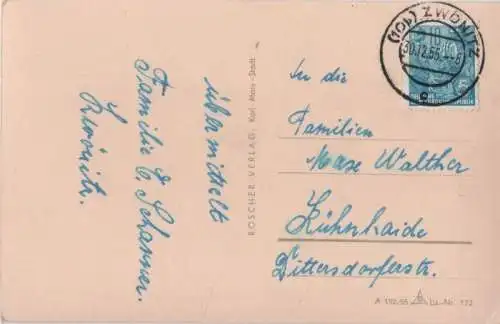 übermittelt
Familie E. Schanner.
Zwönitz.
ROSCHER-VERLAG, Karl-Marx-Stadt
(10b) ZWÖNITZ
30.12.55.
10
In die
Familien
Max Walther
Kühnhaide
Dittersdorferstr.
A 192/55 Lu.-Nr. 172